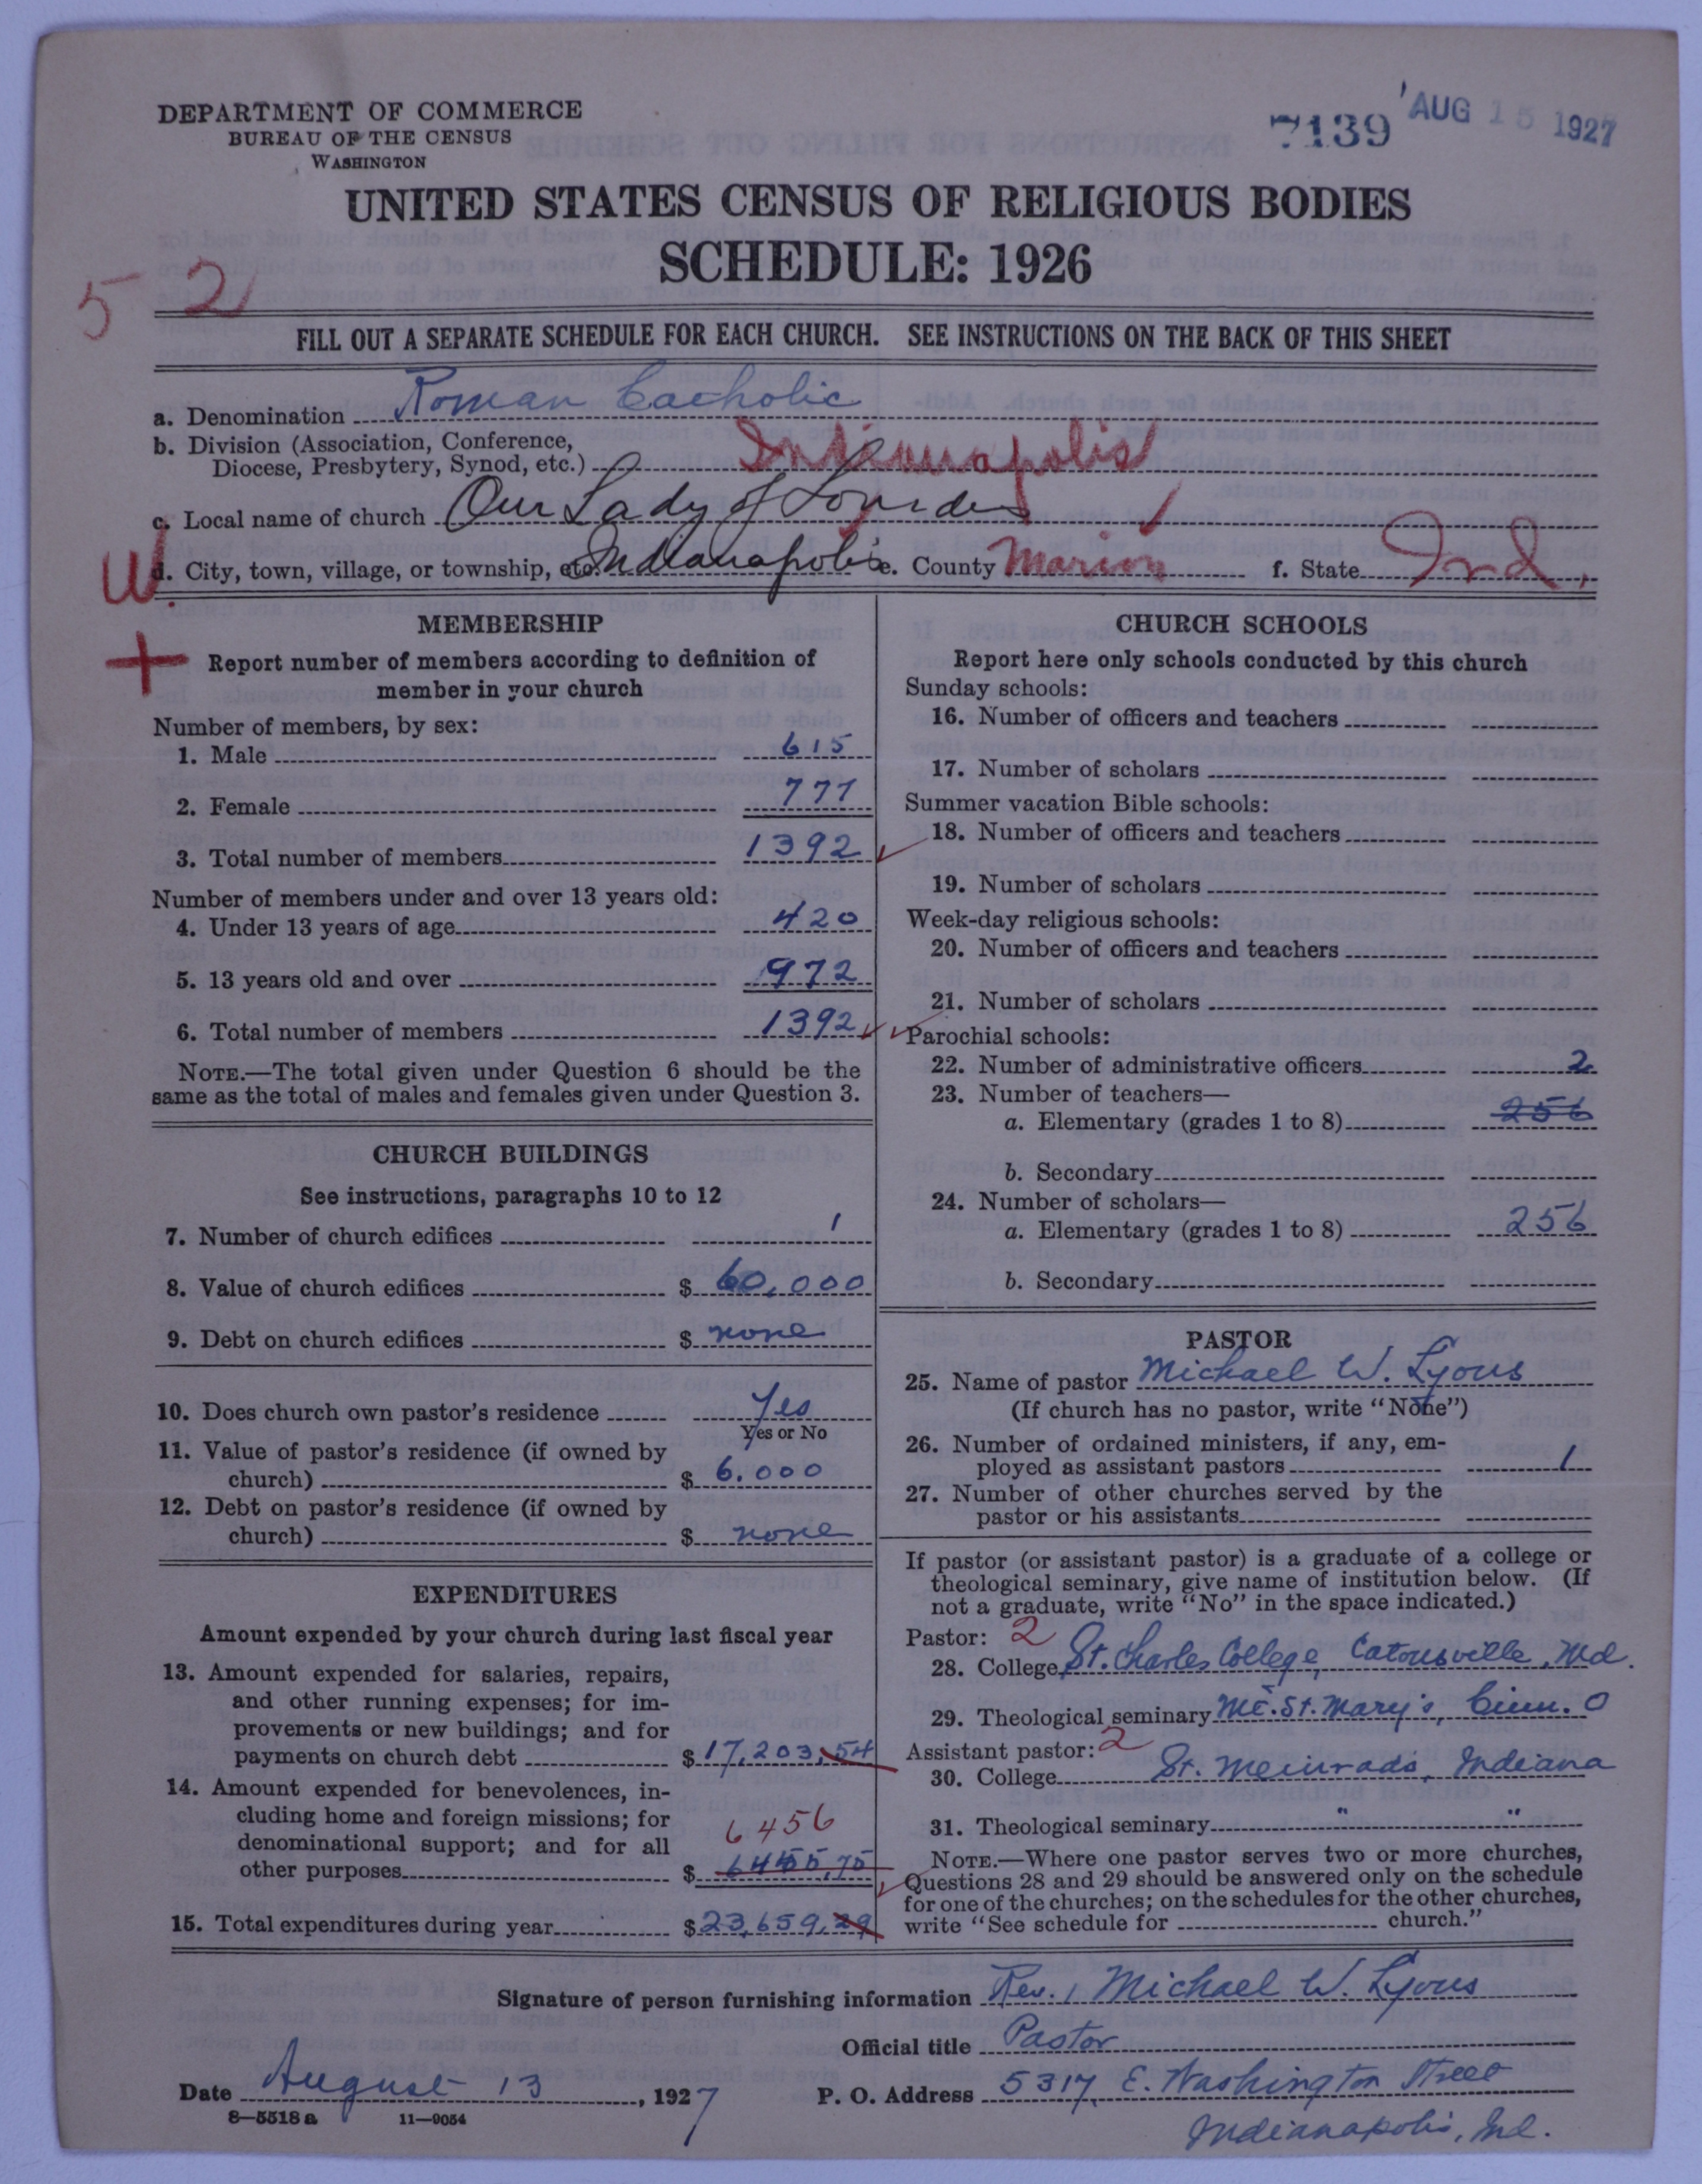 DEPARTMENT OF COMMERCE
BUREAU OF THE CENSUS
WASHINGTON
7139 AUG 15 1927
UNITED STATES CENSUS OF RELIGIOUS BODIES
SCHEDULE: 1926
52
FILL OUT A SEPARATE SCHEDULE FOR EACH CHURCH. SEE INSTRUCTIONS ON THE BACK OF THIS SHEET
a. Denomination Roman Catholic
b. Division (Association, Conference,
Diocese, Presbytery, Synod, etc.) Indianapolis
c. Local name of church Our Lady of Lourdes
W.
d. City, town, village, or township, etc. Indianapolis e. County Marion f. State Ind.
MEMBERSHIP
+
Report number of members according to definition of
member in your church
Number of members, by sex:
1. Male 615
2. Female 777
3. Total number of members 1392
Number of members under and over 13 years old:
4. Under 13 years of age 420
5. 13 years old and over 972
6. Total number of members 1392
NOTE.—The total given under Question 6 should be the
same as the total of males and females given under Question 3.
CHURCH BUILDINGS
See instructions, paragraphs 10 to 12
7. Number of church edifices 1
8. Value of church edifices $ 60,000
9. Debt on church edifices $ none
10. Does church own pastor's residence Yes
Yes or No
11. Value of pastor's residence (if owned by
church) $ 6.000
12. Debt on pastor's residence (if owned by
church) $ none
EXPENDITURES
Amount expended by your church during last fiscal year
13. Amount expended for salaries, repairs,
and other running expenses; for im-
provements or new buildings; and for
payments on church debt $ 17,203,54
14. Amount expended for benevolences, in-
cluding home and foreign missions; for
denominational support; and for all 6456
other purposes $ 6455,75
15. Total expenditures during year $ 23,659,29
CHURCH SCHOOLS
Report here only schools conducted by this church
Sunday schools:
16. Number of officers and teachers
17. Number of scholars
Summer vacation Bible schools:
18. Number of officers and teachers
19. Number of scholars
Week-day religious schools:
20. Number of officers and teachers
21. Number of scholars
Parochial schools:
22. Number of administrative officers 2
23. Number of teachers—
a. Elementary (grades 1 to 8) 256
b. Secondary
24. Number of scholars—
a. Elementary (grades 1 to 8) 256
b. Secondary
PASTOR
25. Name of pastor Michael W. Lyons
(If church has no pastor, write "None")
26. Number of ordained ministers, if any, em-
ployed as assistant pastors 1
27. Number of other churches served by the
pastor or his assistants
If pastor (or assistant pastor) is a graduate of a college or
theological seminary, give name of institution below. (If
not a graduate, write "No" in the space indicated.)
Pastor: 2
28. College St. Charles College, Catonsville, Md.
29. Theological seminary Mt. St. Mary's, Cinn. O
Assistant pastor: 2
30. College St. Meinrads, Indiana
31. Theological seminary " "
NOTE.—Where one pastor serves two or more churches,
Questions 28 and 29 should be answered only on the schedule
for one of the churches; on the schedules for the other churches,
write "See schedule for church."
Signature of person furnishing information Rev. Michael W. Lyons
Official title Pastor
Date August 13, 1927 P. O. Address 5317 E. Washington Street
8—5518 a 11—9054
Indianapolis, Ind.